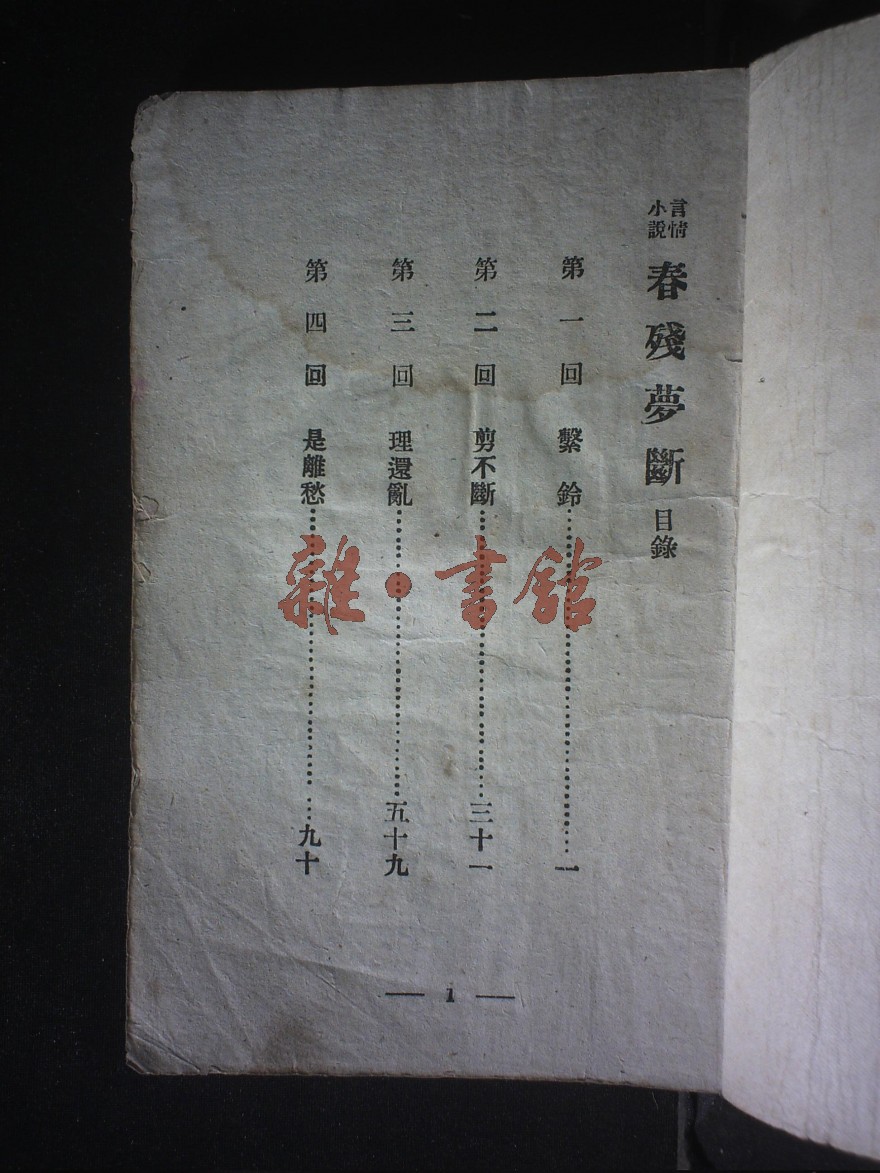 言情小說 春殘夢斷 目錄
第一回 繫鈴⋯⋯⋯⋯一
第二回 剪不斷⋯⋯⋯⋯三十一
第三回 理還亂⋯⋯⋯⋯五十九
第四回 是離愁⋯⋯⋯⋯九十
— 1 —
雜·書館